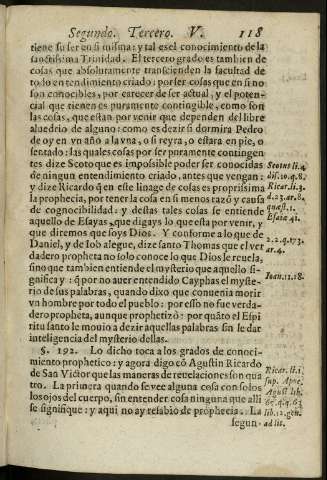 Segundo. Tercero. V. 118
tiene su ser en si misma: y tal es el conocimiento de la
sanctissima Trinidad. El tercero grado es tambien de
cosas que absolutamente transcienden la facultad de
todo entendimiento criado: por ser cosas que en si no
son conocibles, por carecer de ser actual, y el poten-
cial que tienen es puramente contingible, como son
las cosas, que estan por venir que dependen del libre
aluedrio de alguno: como es dezir si dormira Pedro
de oy en vn año a la vna, o si reyra, o estara en pie, o
sentado: las quales cosas por ser puramente contingen
tes dize Scoto que es impossible poder ser conocidas
de ningun entendimiento criado, antes que vengan:
y dize Ricardo q̃ en este linage de cosas es proprissima
la prophecia, por tener la cosa en si menos razó y causa
de cognocibilidad: y destas tales cosas se entiende
aquello de Esayas, que digays lo que esta por venir, y
que diremos que soys Dios. Y conforme a lo que de
Daniel, y de Iob alegue, dize santo Thomas que el ver
dadero propheta no solo conoce lo que Dios le reuela,
sino que tambien entiende el mysterio que aquello si-
gnifica y: q̃ por no auer entendido Cayphas el myste-
rio de sus palabras, quando dixo que conuenia morir
vn hombre por todo el pueblo: por esso no fue verda-
dero propheta, aunque prophetizó: por quãto el Espi
ritu santo le mouio a dezir aquellas palabras sin le dar
inteligencia del mysterio dellas.
§. 192. Lo dicho toca a los grados de conoci-
miento prophetico: y agora digo có Agustin Ricardo
de San Victor que las maneras de reuelaciones son qua
tro. La primera quando se vee alguna cosa con solos
los ojos del cuerpo, sin entender cosa ninguna que alli
se signifique: y aqui no ay resabio de prophecia. La
segun-
Scotus li. 4.
dis. 10. q. 8.
Ricar. li. 3.
d. 23. ar. 8.
quæst. 1.
Esaiæ 41.
2. 2. q. 173.
ar. 4.
Ioan. 11. 18.
Ricar. li. 1.
sup. Apoc.
August. lib.
lib. 12. gen.
ad lit.